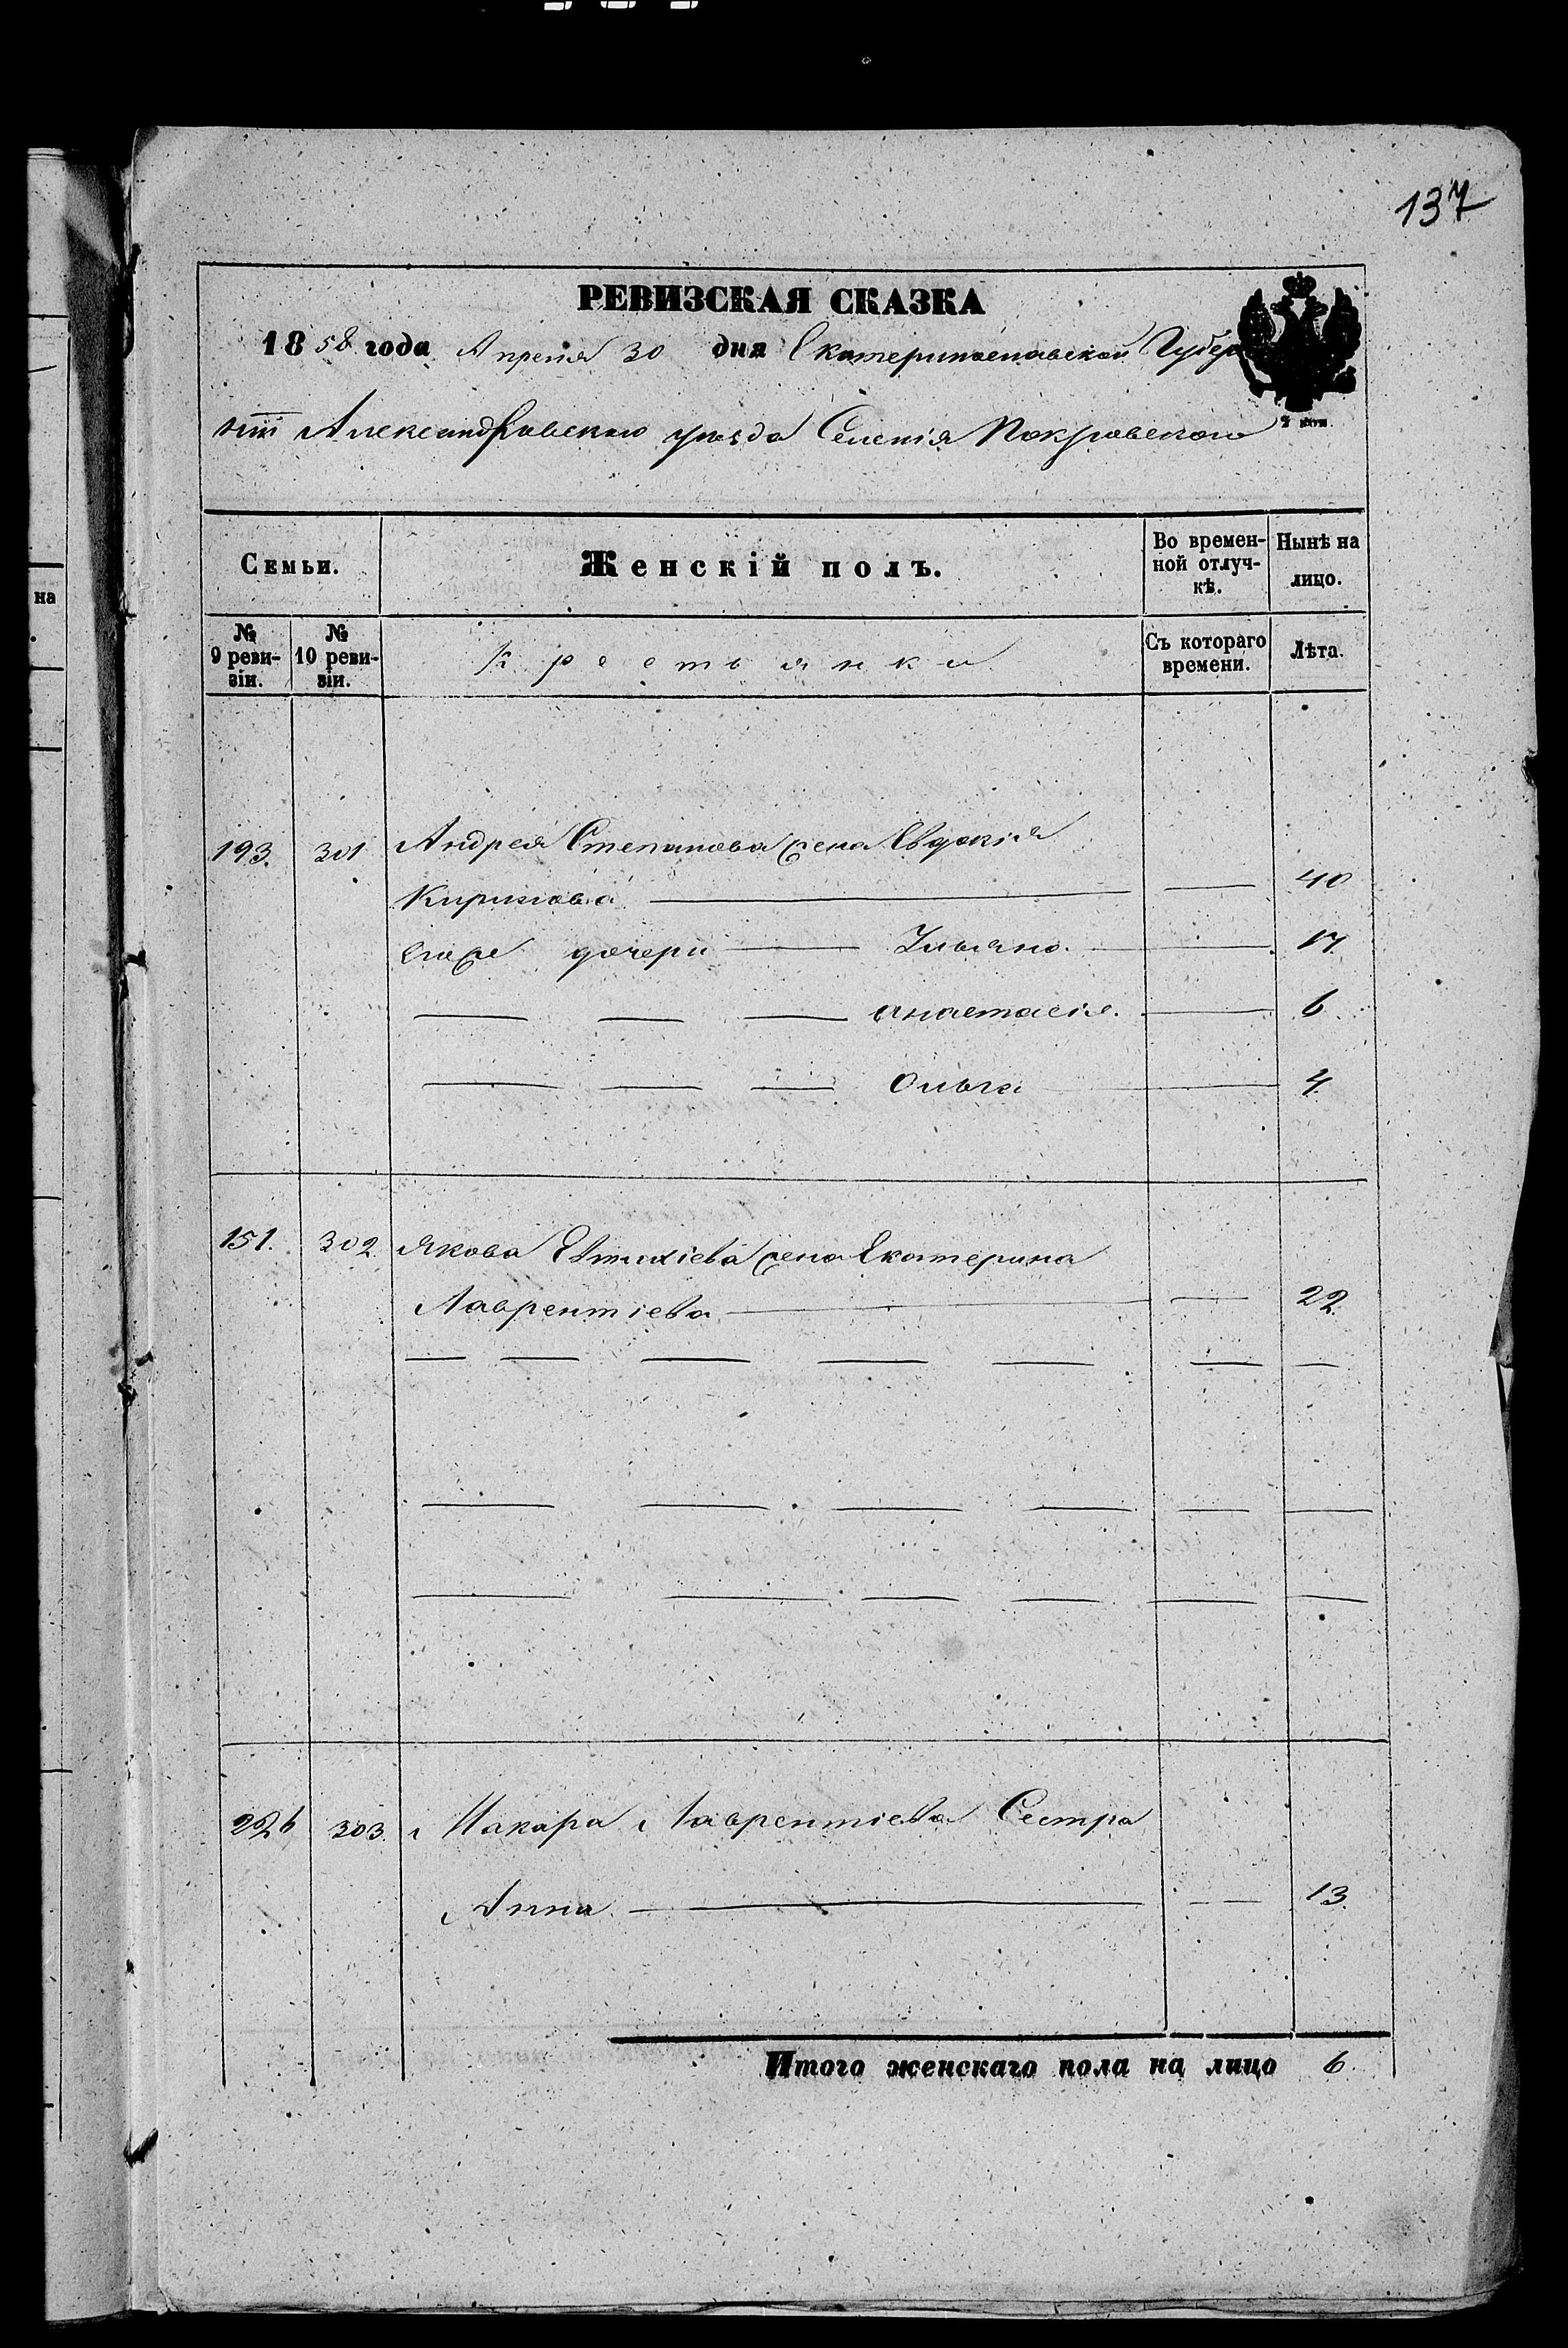 137
РЕВИЗСКАЯ СКАЗКА
1858 года Апреля 30 дня Екатеринославской Губер
нiи Александровского уезда Селенiя Покровского
Семьи. Женскiй полъ. Во времен- Нынѣ на
ной отлуч- лицо.
кѣ.
№ № Крестьянки Съ котораго Лѣта.
9 реви- 10 реви- времени.
зiи. зiи.
193. 301 Андрея Степанова жена Евдокiя
Кирилова 40
ихже дочери Ульяна 17
Анастасiя. 6
Ольга 4
151. 302. Якова Евтихiева жена Екатерина
Лаврентiева 22.
226 303. Макара Лаврентiева Сестра
Анна 13.
Итого женскаго пола на лицо 6.
на